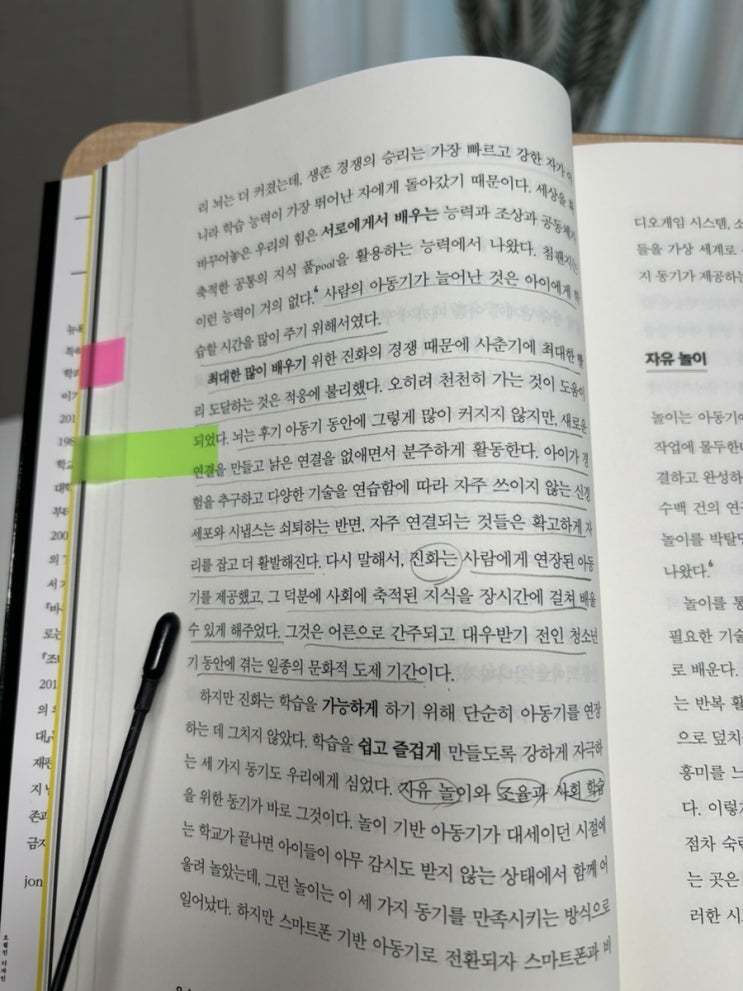 리 뇌는 더 커졌는데, 생존 경쟁의 승리는 가장 빠르고 강한 자가 아
니라 학습 능력이 가장 뛰어난 자에게 돌아갔기 때문이다. 세상을
바꾸어놓은 우리의 힘은 서로에게서 배우는 능력과 조상과 공동체가
축적한 공통의 지식 풀pool을 활용하는 능력에서 나왔다. 침팬지는
이런 능력이 거의 없다.4 사람의 아동기가 늘어난 것은 아이에게 학
습할 시간을 많이 주기 위해서였다.
최대한 많이 배우기 위한 진화의 경쟁 때문에 사춘기에 최대한 빨
리 도달하는 것은 적응에 불리했다. 오히려 천천히 가는 것이 도움이
되었다. 뇌는 후기 아동기 동안에 그렇게 많이 커지지 않지만, 새로운
연결을 만들고 낡은 연결을 없애면서 분주하게 활동한다. 아이가 경
험을 추구하고 다양한 기술을 연습함에 따라 자주 쓰이지 않는 신경
세포와 시냅스는 쇠퇴하는 반면, 자주 연결되는 것들은 확고하게 자
리를 잡고 더 활발해진다. 다시 말해서, 진화는 사람에게 연장된 아동
기를 제공했고, 그 덕분에 사회에 축적된 지식을 장시간에 걸쳐 배울
수 있게 해주었다. 그것은 어른으로 간주되고 대우받기 전인 청소년
기 동안에 겪는 일종의 문화적 도제 기간이다.
하지만 진화는 학습을 가능하게 하기 위해 단순히 아동기를 연장
하는 데 그치지 않았다. 학습을 쉽고 즐겁게 만들도록 강하게 자극하
는 세 가지 동기도 우리에게 심었다. 자유 놀이와 조율과 사회 학습
을 위한 동기가 바로 그것이다. 놀이 기반 아동기가 대세이던 시절에
는 학교가 끝나면 아이들이 아무 감시도 받지 않는 상태에서 함께 어
울려 놀았는데, 그런 놀이는 이 세 가지 동기를 만족시키는 방식으로
일어났다. 하지만 스마트폰 기반 아동기로 전환되자 스마트폰과 비
디오게임 시스템, 소
들을 가상 세계로
지 동기가 제공하는
자유 놀이
놀이는 아동기에
작업에 몰두한
결하고 완성하
수백 건의 연
놀이를 박탈당
나왔다.6
놀이를 통
필요한 기술
로 배운다.
는 반복 활
으로 덮치
흥미를 느
다. 이렇
점차 숙
는 곳은
러한 시
jon